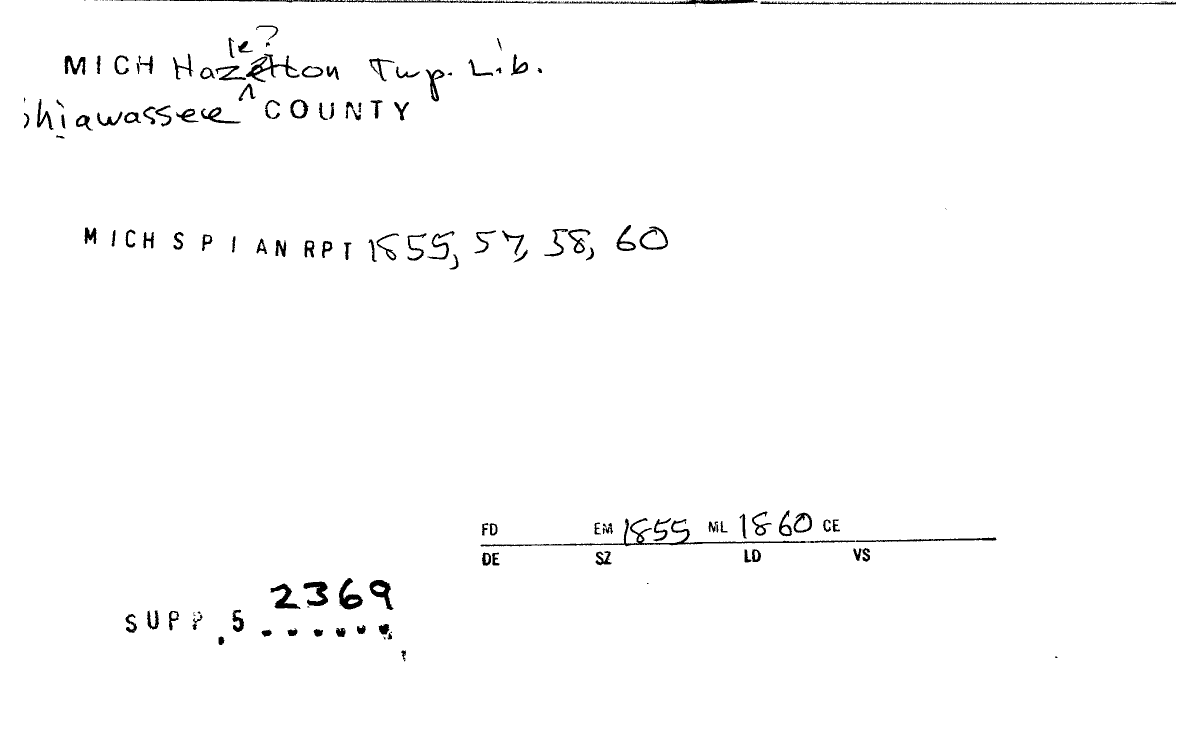 le?
MICH Hazelton Twp. Lib.
Shiawassee ^ COUNTY
MICH S P I AN RPT 1855, 57, 58, 60
FD EM 1855 ML 1860 CE
DE SZ LD VS
2369
SUPP .5 ......